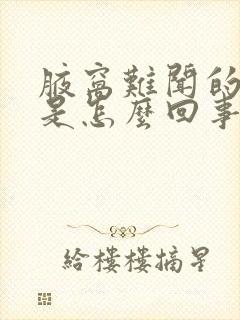 腋窩難聞的
是怎麼回事
給樓樓摘星